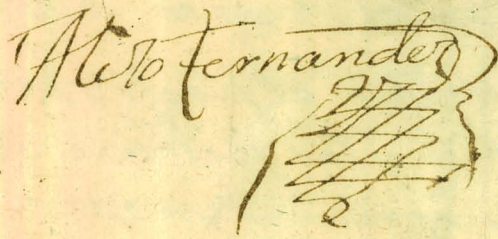 Alejo Fernandez